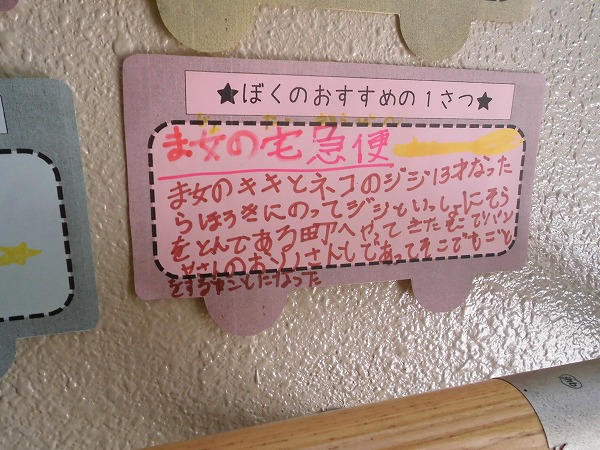 ★ぼくのおすすめの1さつ★
ま女の宅急便
ま女のキキとネコのジジ13才なった
らほうきにのってジジといっしょにそら
をとんである町へやってきたそこでパン
やさんのおソノさんとであってそこでもごと
をするすことになった